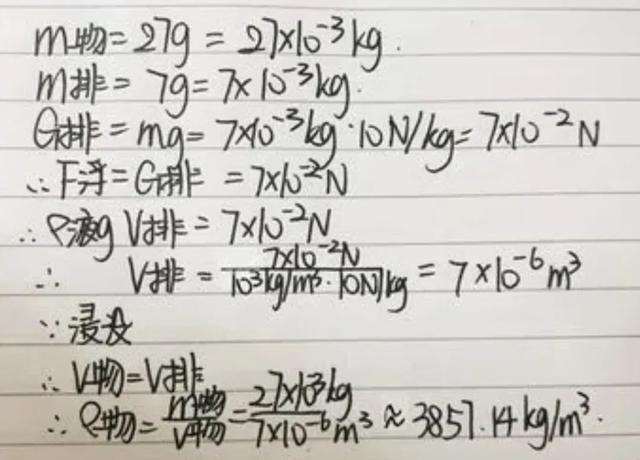 m物=27g=27×10⁻³kg.
m排=7g=7×10⁻³kg.
G排=mg=7×10⁻³kg·10N/kg=7×10⁻²N
∴F浮=G排=7×10⁻²N
∴ρ液gV排=7×10⁻²N
∴V排=7×10⁻²N/10³kg/m³·10N/kg=7×10⁻⁶m³
∵浸没
∴V物=V排
∴ρ物=m物/V物=27×10⁻³kg/7×10⁻⁶m³≈3857.14kg/m³.